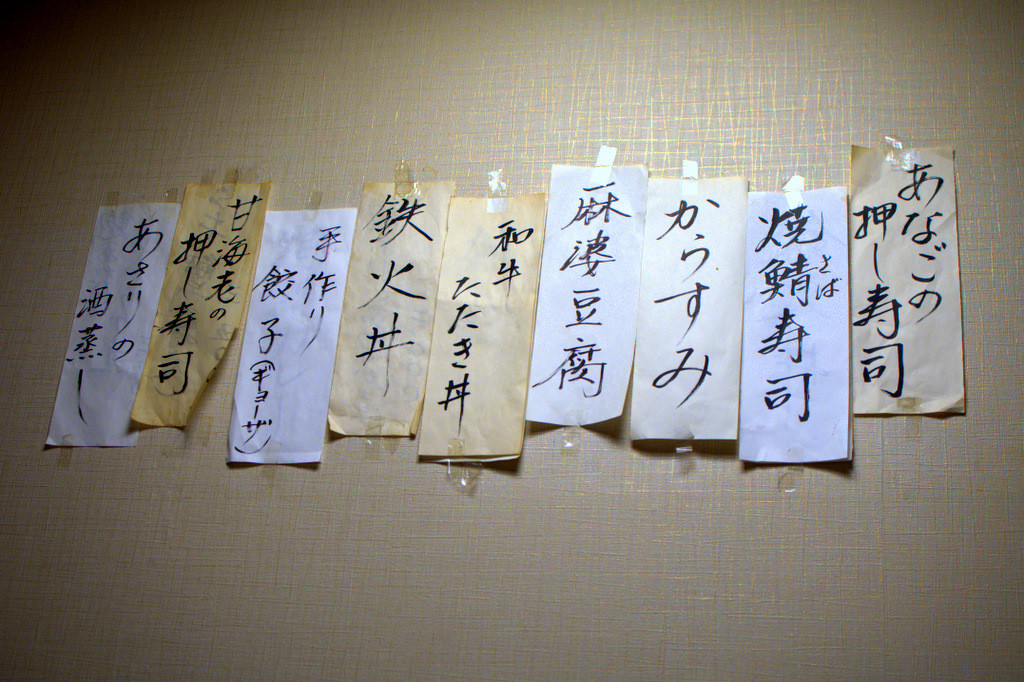 あなごの
押し寿司
焼鯖寿司
さば
からすみ
麻婆豆腐
和牛
たたき丼
鉄火丼
手作り
餃子(ギョーザ)
甘海老の
押し寿司
あさりの
酒蒸し